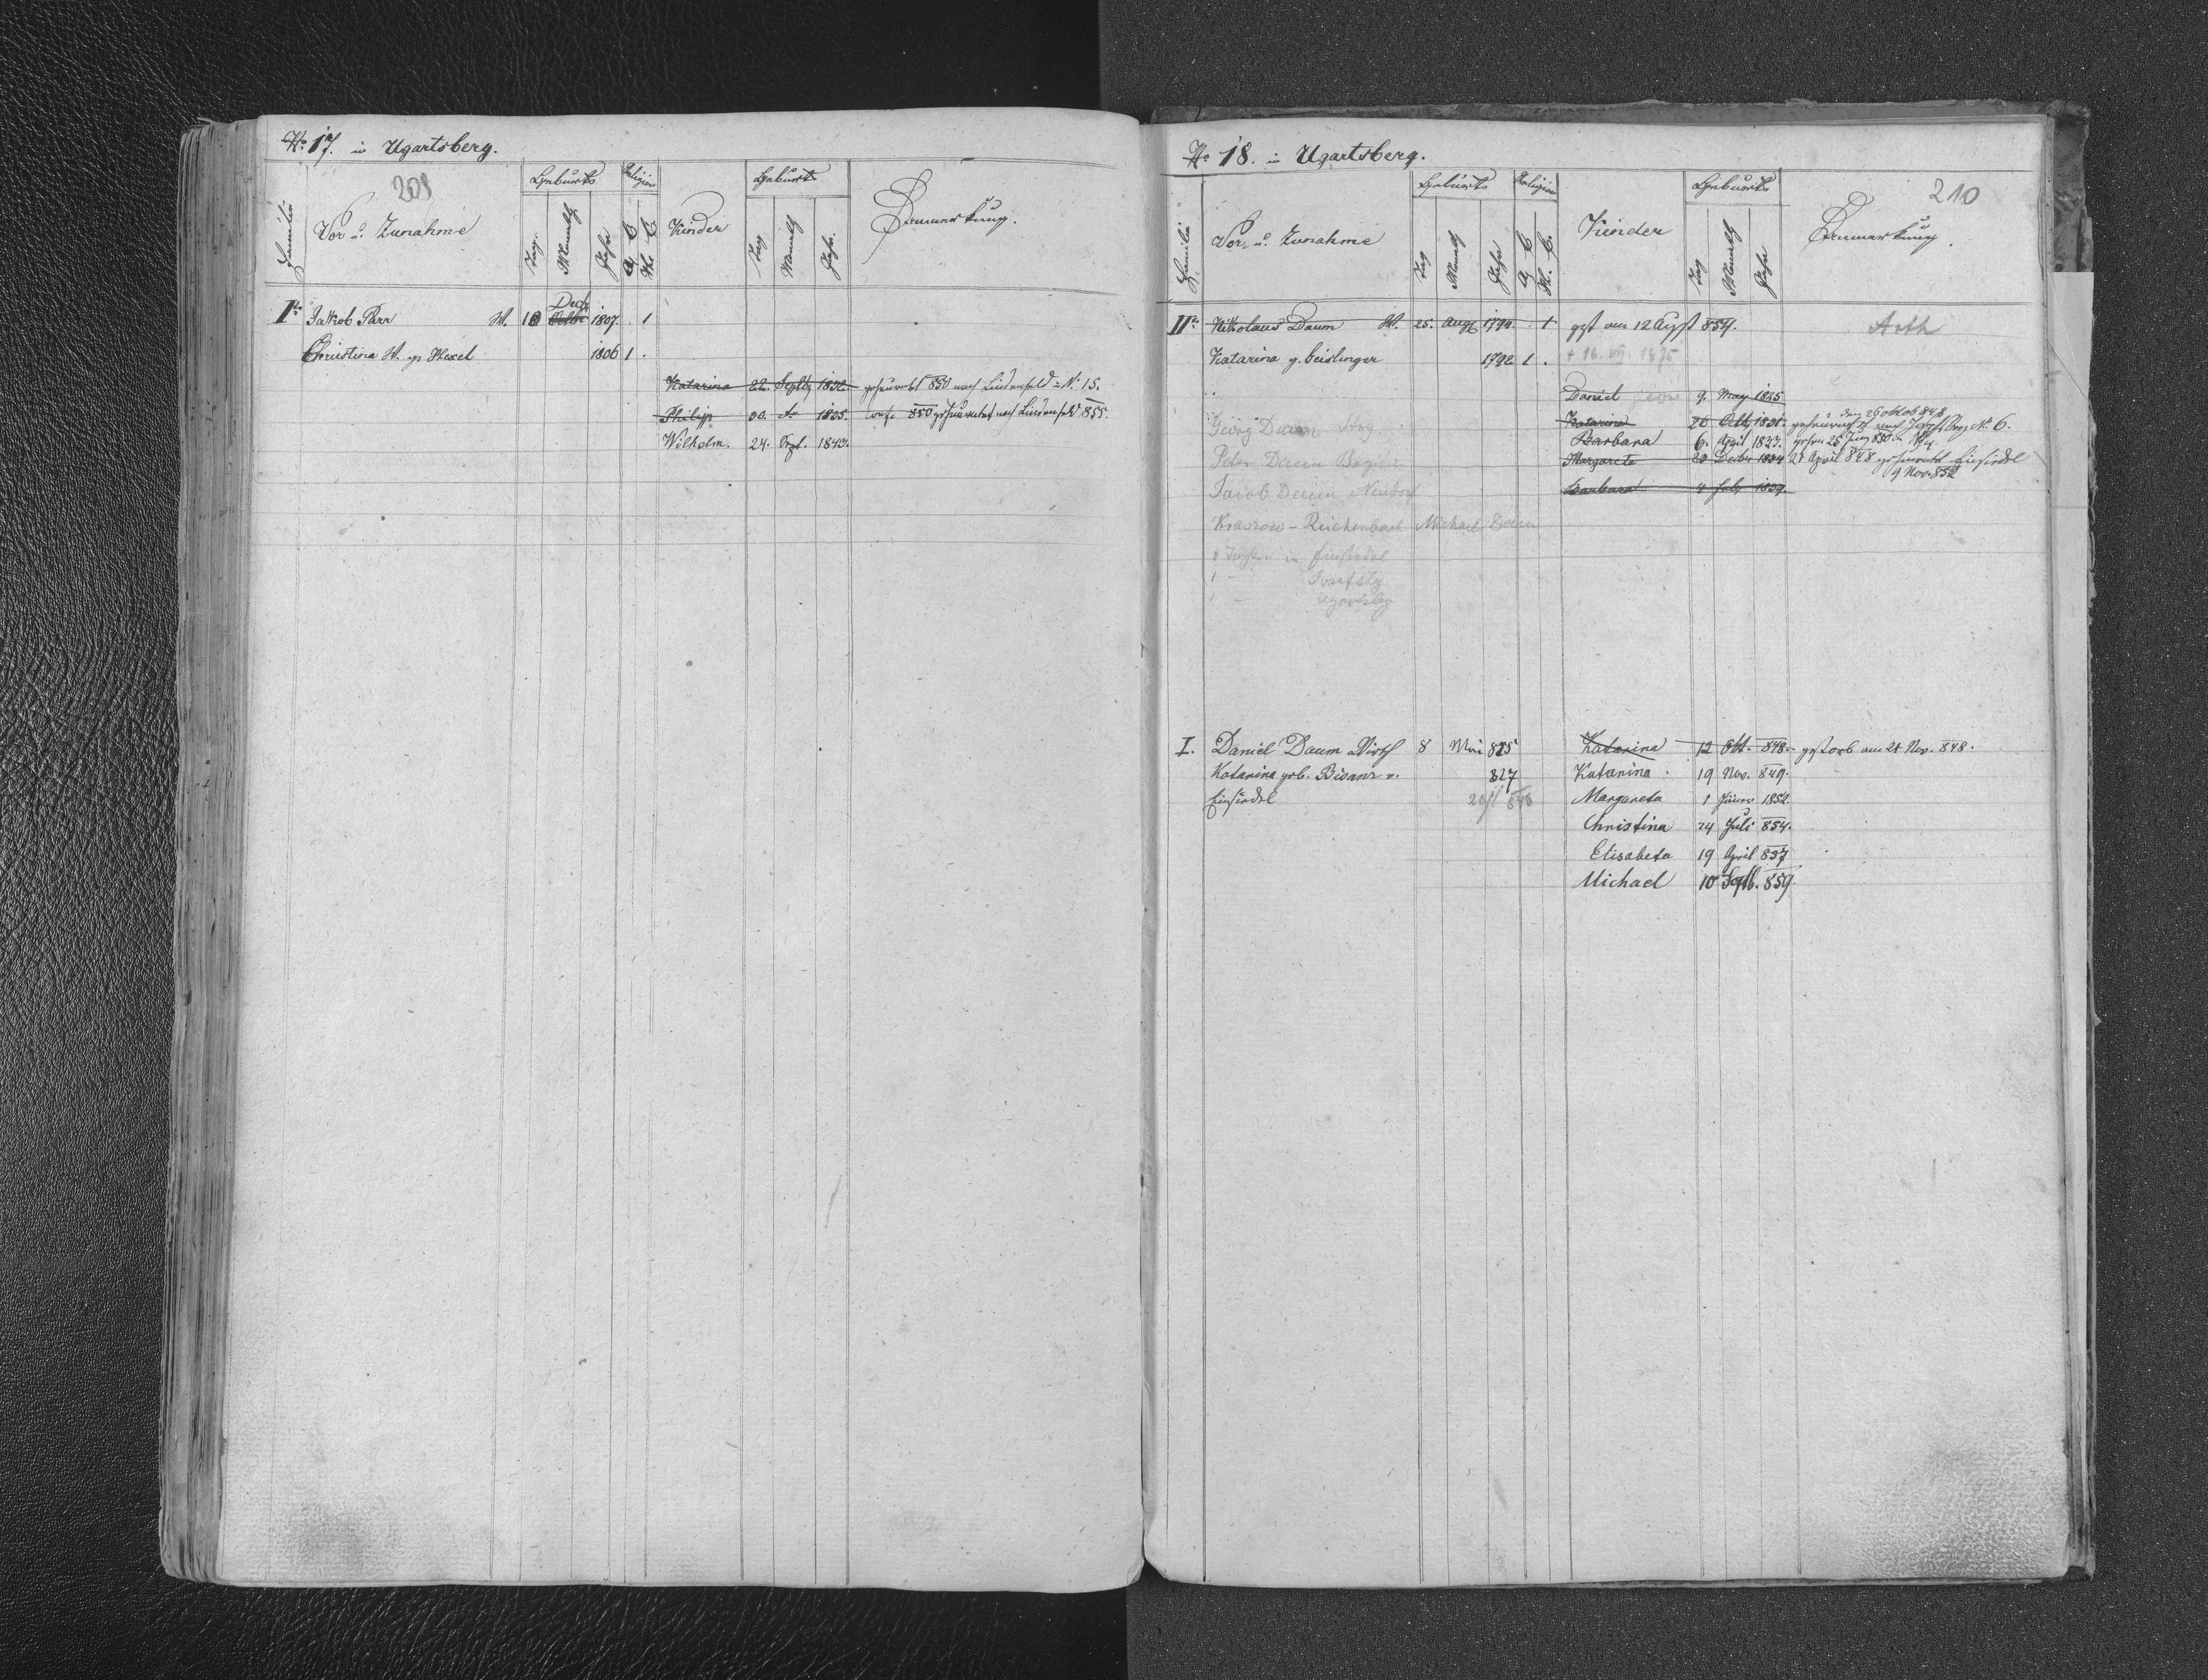 No 17. in Ugartsberg.
209
Familie
Vor u. Zunahme
Geburts
Tag
Monath
Jahr
Religion
A. C.
H. C.
Kinder
Geburts
Tag
Monath
Jahr
Bemerkung.
I. Jakob Parr W. 18 Octbr Decb 1807. 1
Christina W. g. Hexel 1806 1 .
Katarina 22. Septb 1832. geheurathet 850 nach Lindenfeld No. 15.
Philipp 30. 1835. 850 geheurathet nach Lindenfeld 855.
Wilhelm. 24. Sept. 1843.
No 18. in Ugartsberg.
210
Familie
Vor u. Zunahme
Geburts
Tag
Monath
Jahr
Religion
A. C.
H. C.
Kinder
Geburts
Tag
Monath
Jahr
Bemerkung.
II. Nikolaus Daum W. 25. Augst 1794. 1 gest am 12 Augst 854.
Katarina g. Geislinger 1792 1 . + 16. VII. 1875
Daniel 9. May 1825
Georg Daum
Katarina 26 Octb 1831. den 26 Octob 848 geheurathet nach Josefsberg N. 6.
Barbara 6. April 1823. 25 Juny 850
Peter Daum
Margareta 20 Decbr 1834 21 April 848 geheurathet Einsiedel
9 Nov 852
Jacob Daum Neudorf
Barbara 4 July 1839.
Krasow - Reichenbach Michael Daum
1 in Einsiedel
1 - Josefsbg
1 - Ugartsbg
I. Daniel Daum Wirth 8 Mai 825
Katarina 12 Okt. 848. gestorb am 21 Nov. 848.
Katarina geb. Bisanz v. 827
Katarina. 19 Nov. 849.
Einsiedel 848
Margareta 1 Jänner 1852.
Christina 24 Juli 854.
Elisabeta 19 April 857
Michael 10 Septb. 859.